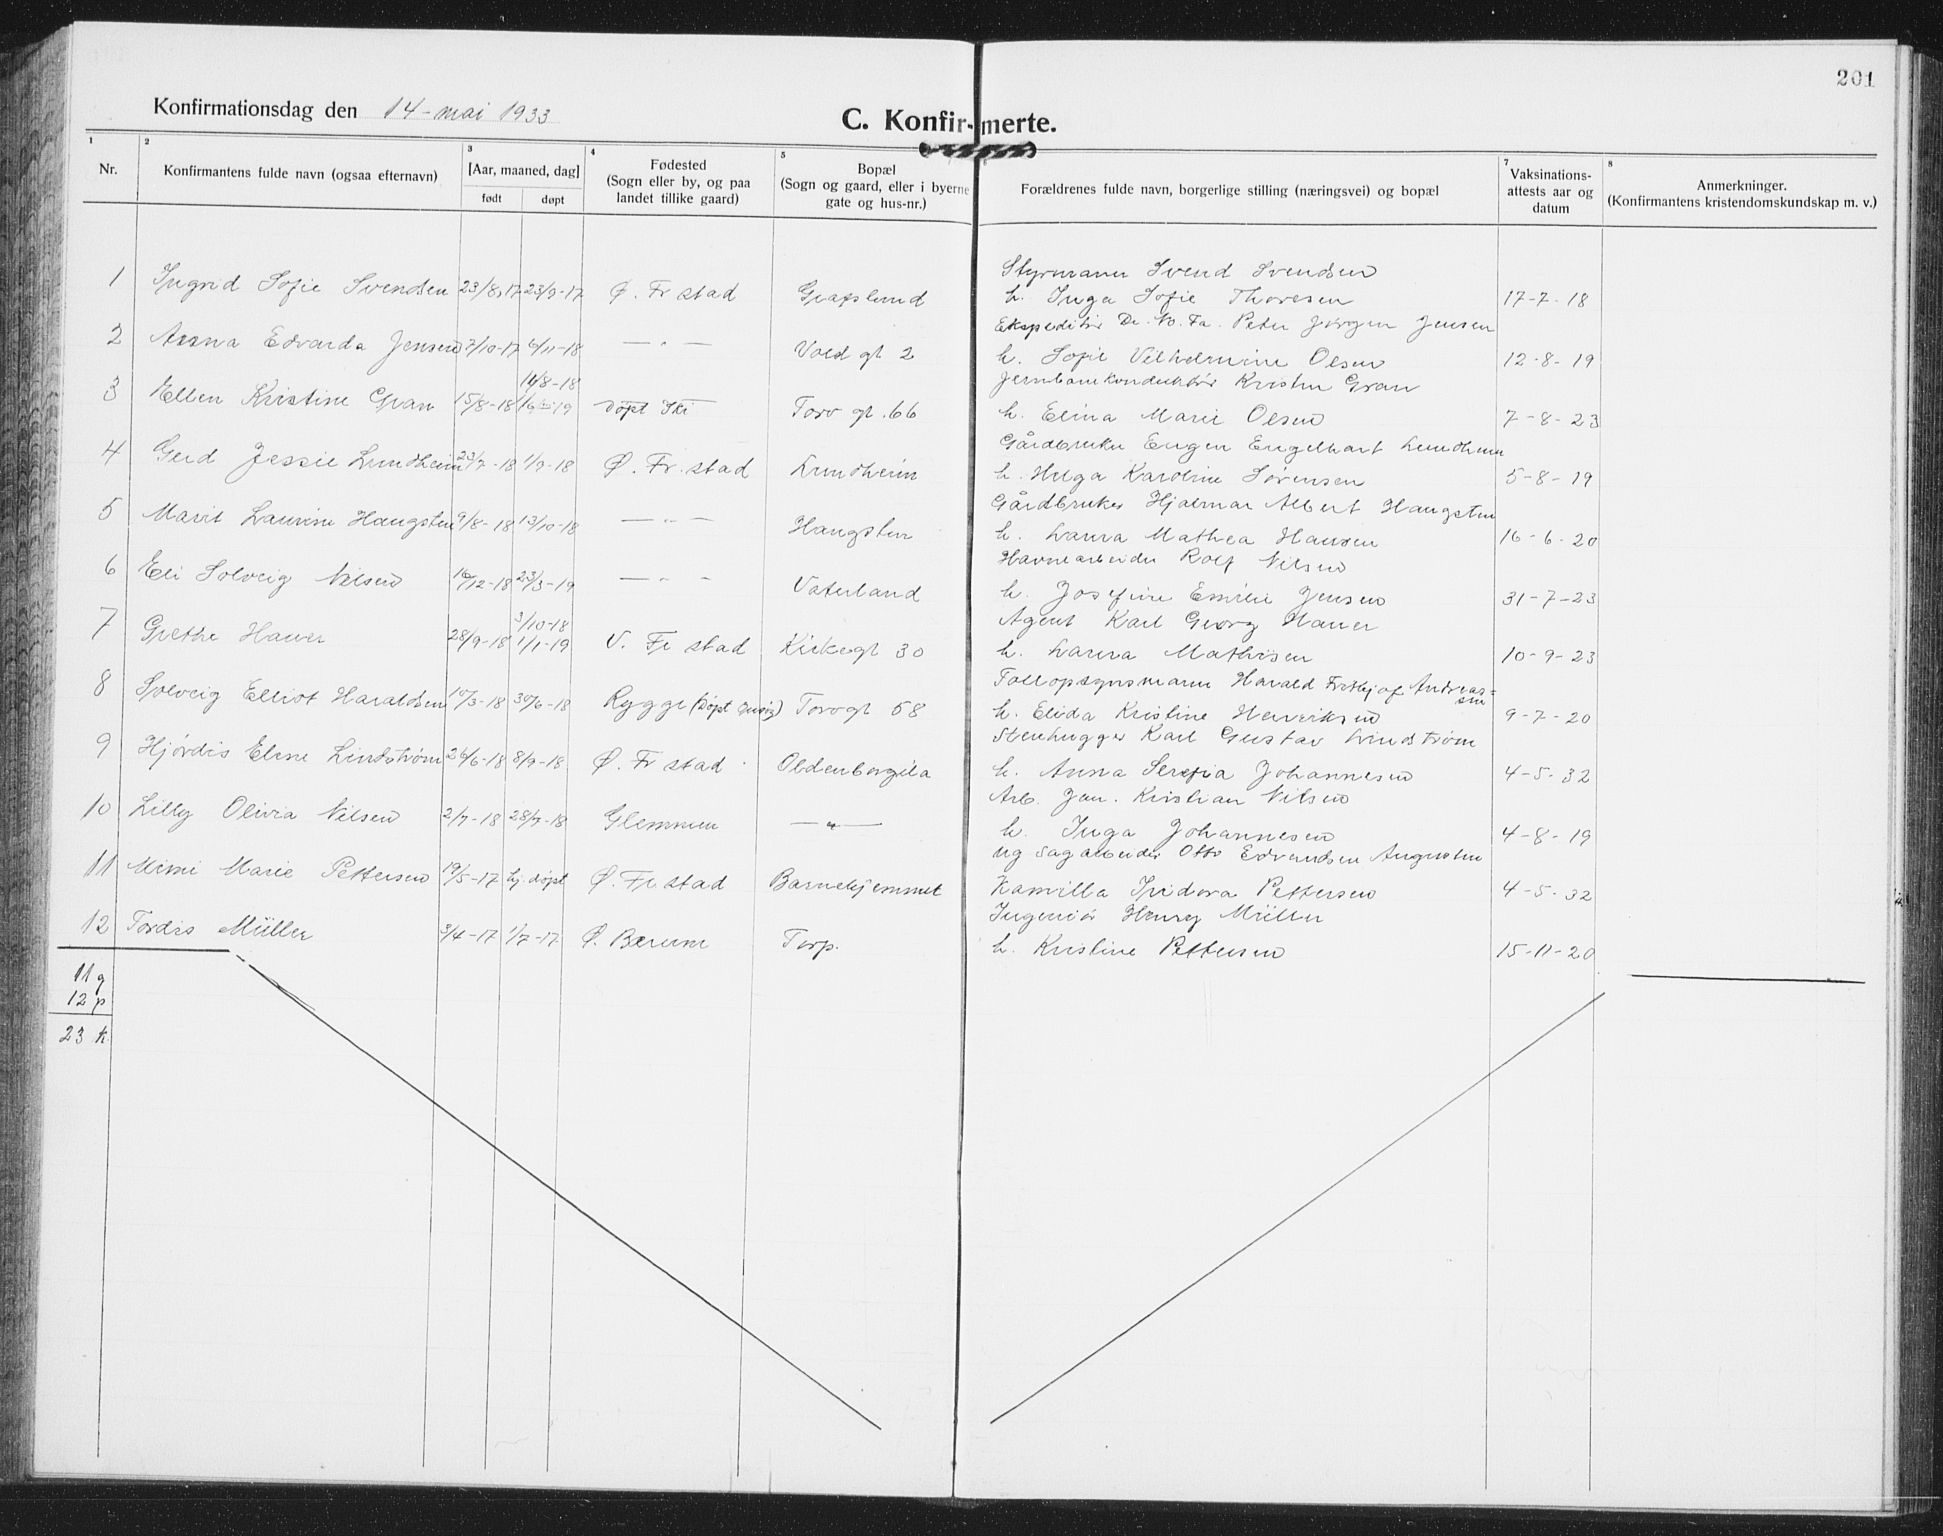 201
Konfirmationsdag den 14 - mai 1933
C. Konfir-merte.
1 2 3 4 5 7 8
Nr.
Konfirmantens fulde navn (ogsaa efternavn)
[Aar, maaned, dag]
født døpt
Fødested
(Sogn eller by, og paa
landet tillike gaard)
Bopæl
(Sogn og gaard, eller i byerne
gate og hus-nr.)
Forældrenes fulde navn, borgerlige stilling (næringsvei) og bopæl
Vaksinations-
attests aar og
datum
Anmerkninger.
(Konfirmantens kristendomskundskap m. v.)
Styrmann Svend Svendsen
1 Ingrid Sofie Svendsen 23/8-17 23/9-17 Ø. Fr stad h. Inga Sofie Thoresen 17-7-18
Ekspeditør Peter Jørgen Jensen
2 Anna Edvarda Jensen 7/10-17 4/11-18 — " — Vold gt 2 h. Sofie Vilhelmine Olsen 12-8-19
Jernbanekonduktør Kristen Gran
3 Ellen Kristine Gran 15/8-18 Døpt Ski Torv gt. 66 h. Elina Marie Olsen 7-8-23
Gårdbruker Eugen Engelhart Lundheim
4 Gerd Jessie Lundheim 23/7-18 1/9-18 Ø. Fr. stad Lundheim h. Helga Karoline Sørensen 5-8-19
Gårdbruker Hjalmar Albert Haugsten
5 Marit Laurine Haugsten 9/8-18 13/10-18 — " — Haugsten h. Laura Mathea Hansen 16-6-20
Havnearbeider Rolf Nilsen
6 Eli Solveig Nilsen 16/12-18 23/3-19 — " — Vaterland h. Josefine Emilie Jensen 31-7-23
3/10-18 Agent Karl Georg Hauer
7 Grethe Hauer 28/9-18 1/1-19 V. Fr stad Kirkegt 30 h. Laura Mathisen 10-9-23
Tollopsynsmann Harald Fritjof Andreas=
sen
8 Solveig Elliot Haraldsen 10/3-18 30/6-18 Rygge Torvgt 58 h. Elida Kristine Henriksen 9-7-20
Stenhugger Karl Gustav Lindstrøm
9 Hjørdis Elene Lindstrøm 26/6-18 8/9-18 Ø. Fr stad Oldenborgita h. Anna Serefia Johannesen 4-5-32
Arb. Jen. Kristian Nilsen
10 Lilly Olivia Nilsen 2/7-18 28/7-18 Glemmen — " — h. Inga Johannesen 4-8-19
ug sagarbeider Otto Edvardsen Augusten
11 Mimi Marie Pettersen 19/5-17 hj. døpt Ø. Fr stad Barnehjemmet Kamilla Isidora Pettersen 4-5-32
Ingeniør Henry Müller
12 Tordis Müller 3/4-17 1/7-17 Ø. Bærum Torp. h. Kristine Pettersen 15-11-20
11 g
12 p
23 k